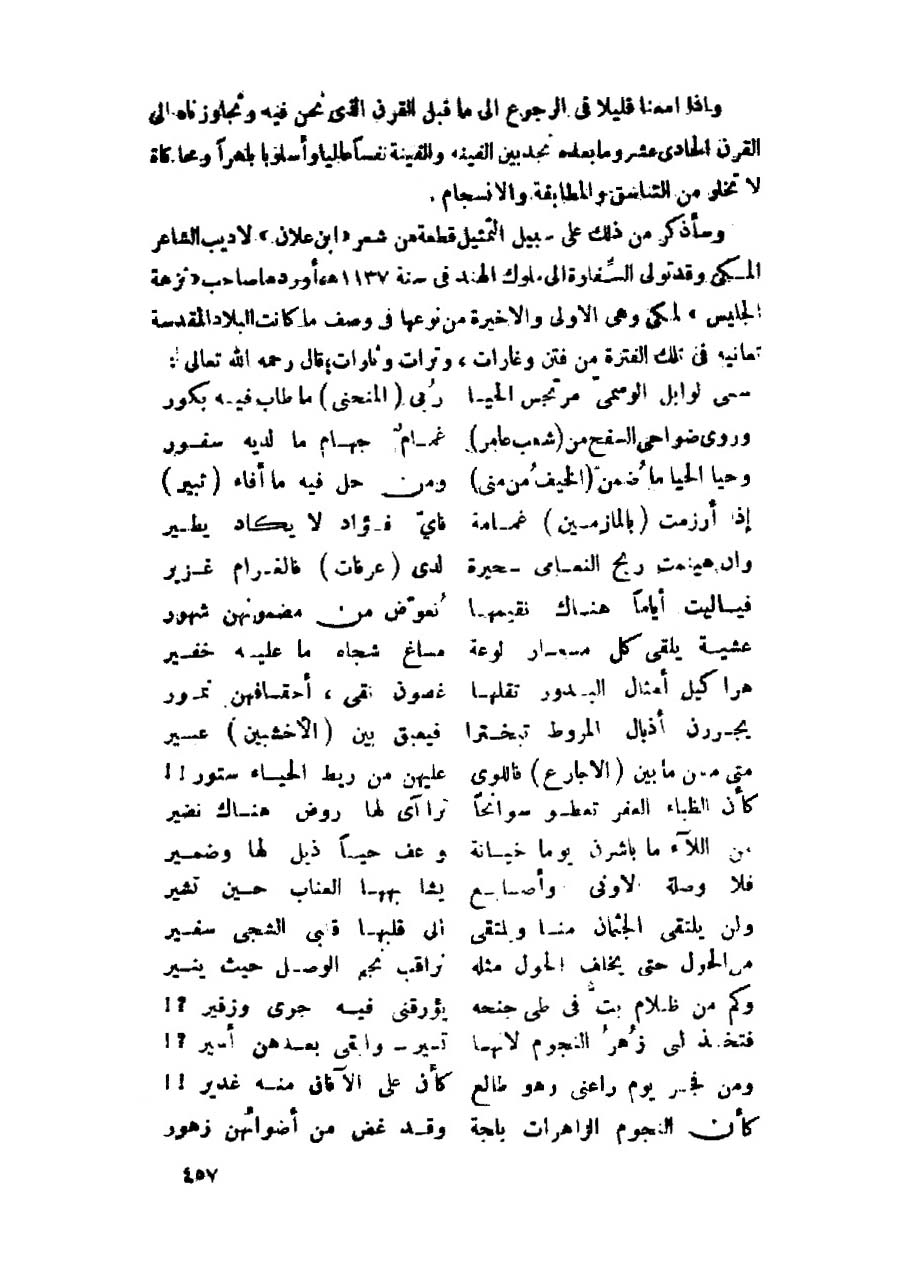 واذا امعنا قليلا في الرجوع الى ما قبل القرن الذى نحن فيه ونجاوزناه الى
القرن الحادى عشر وما بعده نجد بين الفينة والفينة نفسا عاليا وأسلوبا باهراً ومحاكاة
لا تخلو من التناسق والمطابقة والانسجام .
وسأذكر من ذلك على سبيل التمثيل قطعة من شعر «ابن علان» لاديب الشاعر
المكي وقد تولى السِّفارة الى ملوك الهند فى سنة ١١٣٧ هـ أوردها صاحب «نزهة
الجليس» لمكى وهى الاولى والاخيرة من نوعها فى وصف ما كانت البلاد المقدسة
تعانيه فى تلك الفترة من فتن وغارات ، وترات وثارات؛ قال رحمه الله تعالى :
سقى لوابل الوسمىّ مرتجس الحيا رُبى (المنحنى) ما طاب فيه بكور
وروى ضواحى السفح من (شعب عامر) غمامٌ جهام ما لديه سفور
وحيا الحيا ما ضُمنّ (الخيفُ من منى) ومن حل فيه ما أفاء (ثبير)
إذا أرزمت (بالمازمين) غمامة فايّ فؤاد لا يكاد يطير
وان هينمت ريح النعامى بحيرة لدى (عرفات) فالغرام غزير
فياليت أياماً هناك نقيمها تُعوّض من مضمونهن شهور
عشية يلقى كل مسمار لوعة مساغ شجاه ما عليه خفير
هراكيل أمثال البدور تقلها غصون نقى ، أحقافهن تمور
يجررن أذيال المروط تبخترا فيعبق بين (الأخشبين) عبير
متى مسن ما بين (الاجارع) فاللوى عليهن من ربط الحياء ستور !!
كأن الظباء العفر تعطو سوانحاً تراآى لها روض هناك نضير
من اللآء ما باشرن يوما خيانة وعف حيـاً ذيل لها وضمير
فلا وصلة الاوفى وأصابع يشابهها العناب حين تشير
ولن يلتقى الجثمان منا ويلتقى الى قلبها قلبى الشجى سفير
من الحول حتى يخلف الحول مثله نراقب نجم الوصل حيث ينير
وكم من ظلام بتُ فى طى جنحه يؤرقنى فيه جوى وزفير ؟!
فتخذ لى زُهرُ النجوم لانها تسير وابقى بعدهن أسير ؟!
ومن فجر يوم راعنى وهو طالع كأن على الآفاق منه غدير !!
كأن النجوم الزاهرات بلجة وقد غض من أضوائهن زهور
٤٥٧